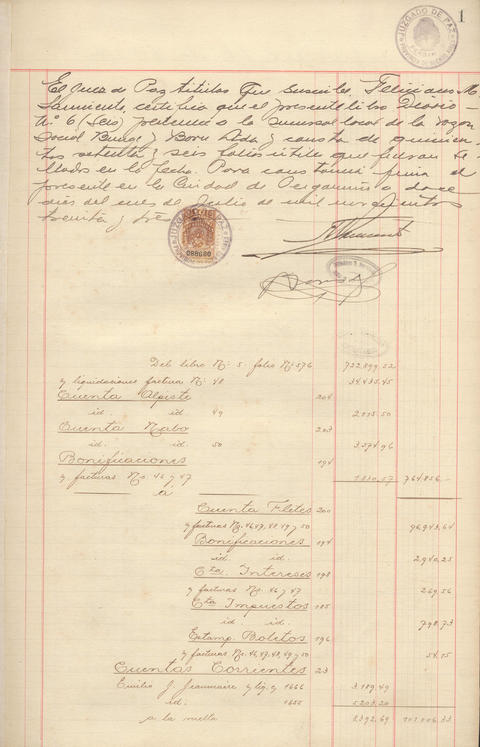 1
JUZGADO DE PAZ
El Juez de Paz Titular que suscribe, Feliciano M.
Sarmiento, certifica que el presente libro Diario
Nº 6 (seis) pertenece a la sucursal local de la razon
Social Bunge y Born Ltda y consta de quinien-
tos setenta y seis folios útiles que fueron se-
llados en la fecha. Para constancia firma el
presente en la Ciudad de Pergamino a doce
dias del mes de Julio de mil novecientos
treinta y tres
JUZGADO DE PAZ
088680
Del libro Nº 5 folio Nº 576 722.899,52
y liquidaciones factura Nº 48 34.435,45
Cuenta Alpiste 204
id. id 49 2.115,50
Cuenta Nabo 203
id. id. 50 3.574,96
Bonificaciones 194
y facturas Nº 46 y 47 1.830,57 764.856.-
a
Cuenta Fletes 200
y facturas Nº 46,47,48,49 y 50 96.943,64
Bonificaciones 194
id. id. 2.940,25
Cta. Intereses 198
y facturas Nº 46 y 47 269,56
Cta Impuestos 185
id. id. 798,73
Estamp. Boletos 196
y facturas Nº 46,47,48,49 y 50 54,15
Cuentas Corrientes 23
Emilio J. Jeanmaire y liq. 1666 3.189,49
id. 1655 5.203,20
a la vuelta 8392,69 101.006,33